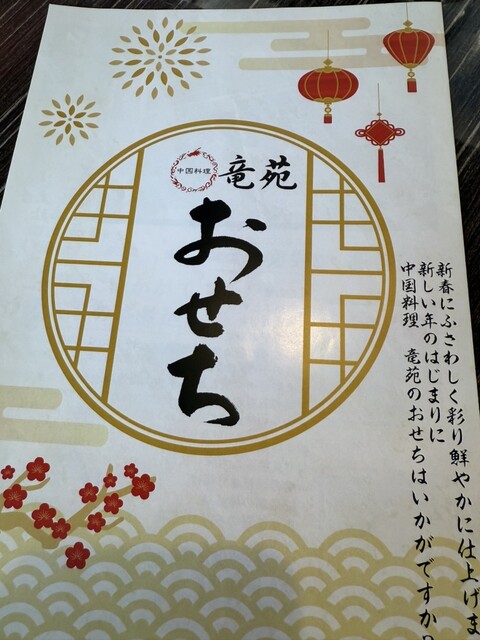 中国料理
竜苑
おせち
新春にふさわしく彩り鮮やかに仕上げま
新しい年のはじまりに
中国料理 竜苑のおせちはいかがですか